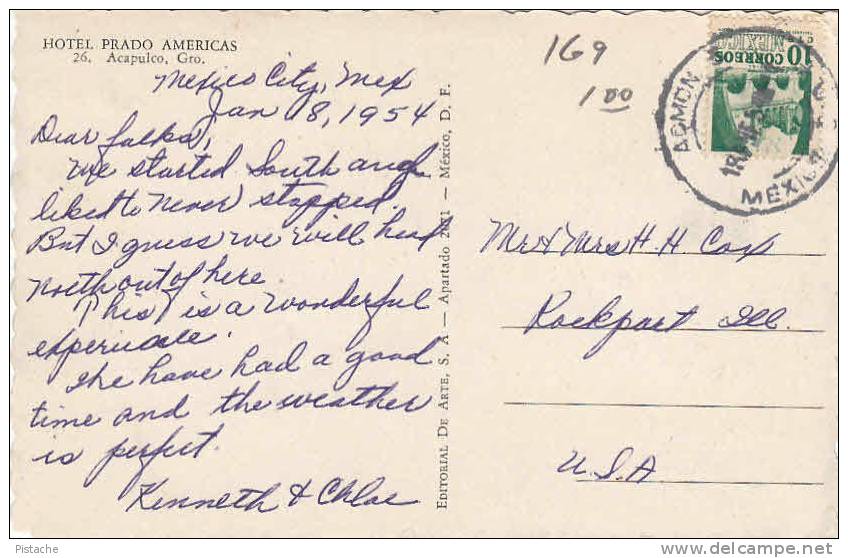 HOTEL PRADO AMERICAS
26. Acapulco, Gro.
Mexico City, Mex
Jan 18, 1954
Dear folks,
We started South and
liked to never stopped.
But I guess we will head
North out of here.
This is a wonderful
experience.
We have had a good
time and the weather
is perfect.
Kenneth & Chloe
EDITORIAL DE ARTE, S. A. — Apartado — México, D. F.
169
1 00
Mr & Mrs H. H Cox
Rockport Ill.
U.S.A
10
CORREOS
MEXICO
ADMON
MEXICO
Pistache
delcampe.net